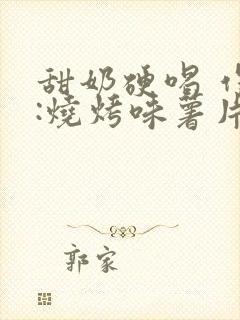 甜奶硬唱
:燒烤味薯片
郭家